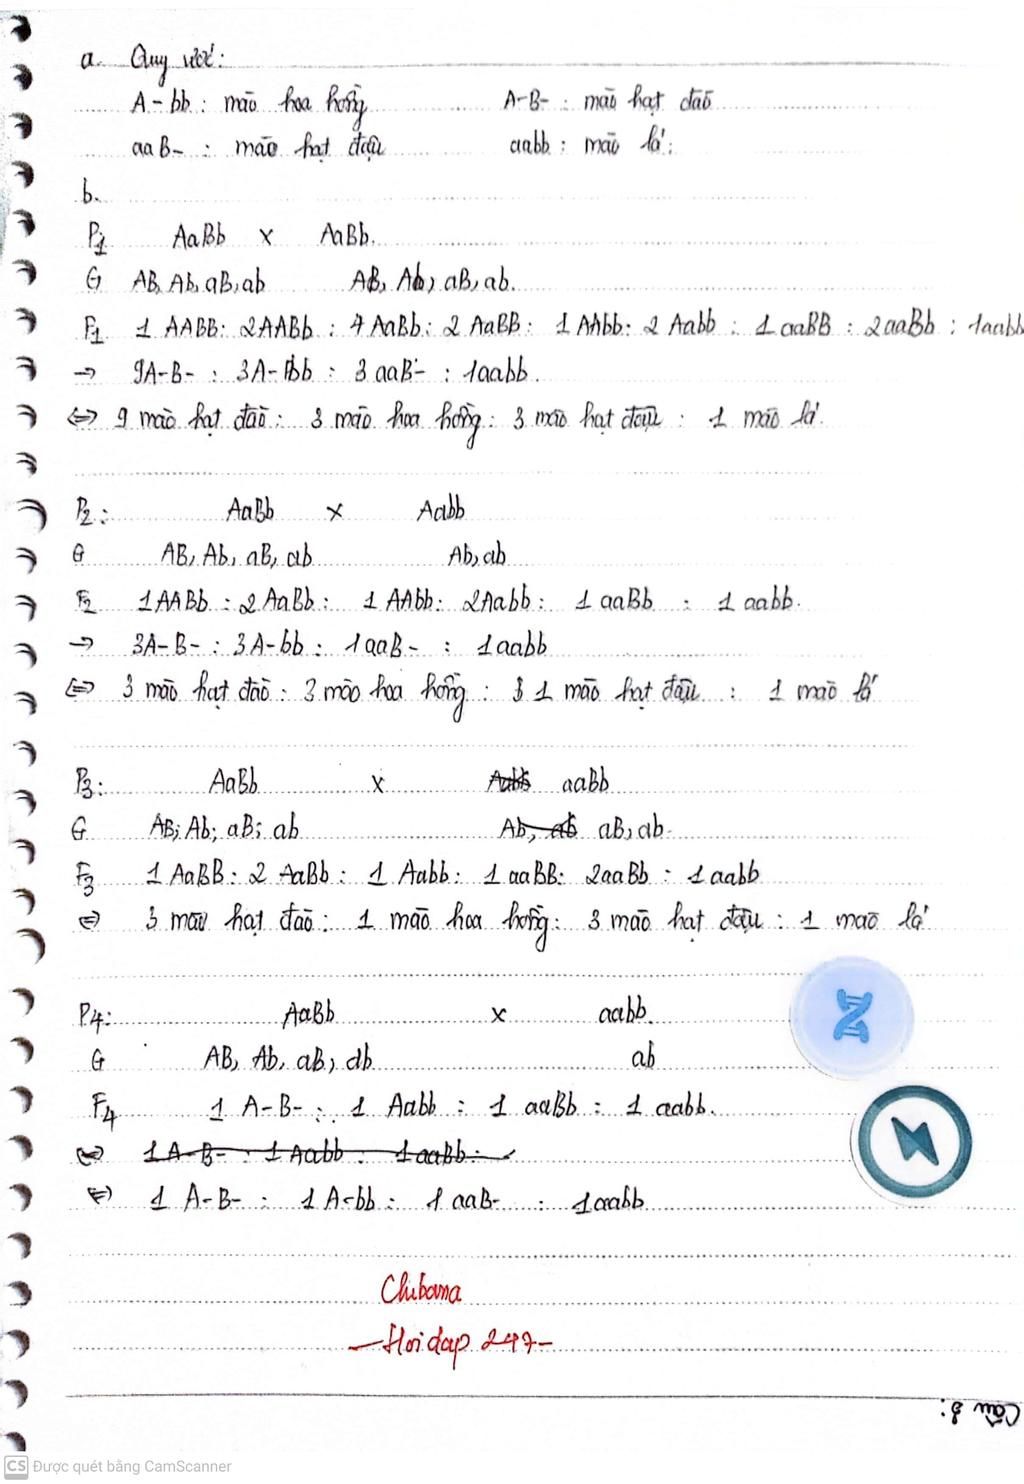 a. Quy ước:
A-bb: mão hoa hồng A-B-: mão hạt đào
aaB-: mão hạt đậu aabb: mão lá:
b.
P1 AaBb x AaBb.
G AB, Ab, aB, ab AB, Ab, aB, ab.
F1 1 AABB: 2AABb: 4 AaBb: 2 AaBB: 1 AAbb: 2 Aabb: 1 aaBB: 2aaBb: 1aabb
→ 9A-B-: 3A-bb: 3 aaB-: 1aabb.
⇔ 9 mào hạt đào: 3 mão hoa hồng: 3 mão hạt đậu: 1 mão lá.
P2: AaBb x Aabb
G AB, Ab, aB, ab Ab, ab
F2 1AABb: 2 AaBb: 1 AAbb: 2Aabb: 1 aaBb: 1 aabb.
→ 3A-B-: 3A-bb: 1aaB-: 1aabb
⇔ 3 mão hạt đào: 3 mão hoa hồng: 1 mão hạt đậu: 1 mão lá
P3: AaBb x Aabb aaBb
G AB; Ab; aB; ab Ab, ab aB, ab.
F3 1 AaBB: 2 AaBb: 1 Aabb: 1 aaBB: 2aaBb: 1 aabb
⇔ 3 mão hạt đào: 1 mão hoa hồng: 3 mão hạt đậu: 1 mão lá
P4: AaBb x aabb.
G AB, Ab, aB, ab ab
F4 1 A-B-: 1 Aabb: 1 aaBb: 1 aabb.
⇔ 1A-B-: 1Aabb: 1aaBb:
⇔ 1 A-B-: 1 A-bb: 1 aaB-: 1aabb
Chibana
-Hoidap 247-
Câu 3:
CS Được quét bằng CamScanner